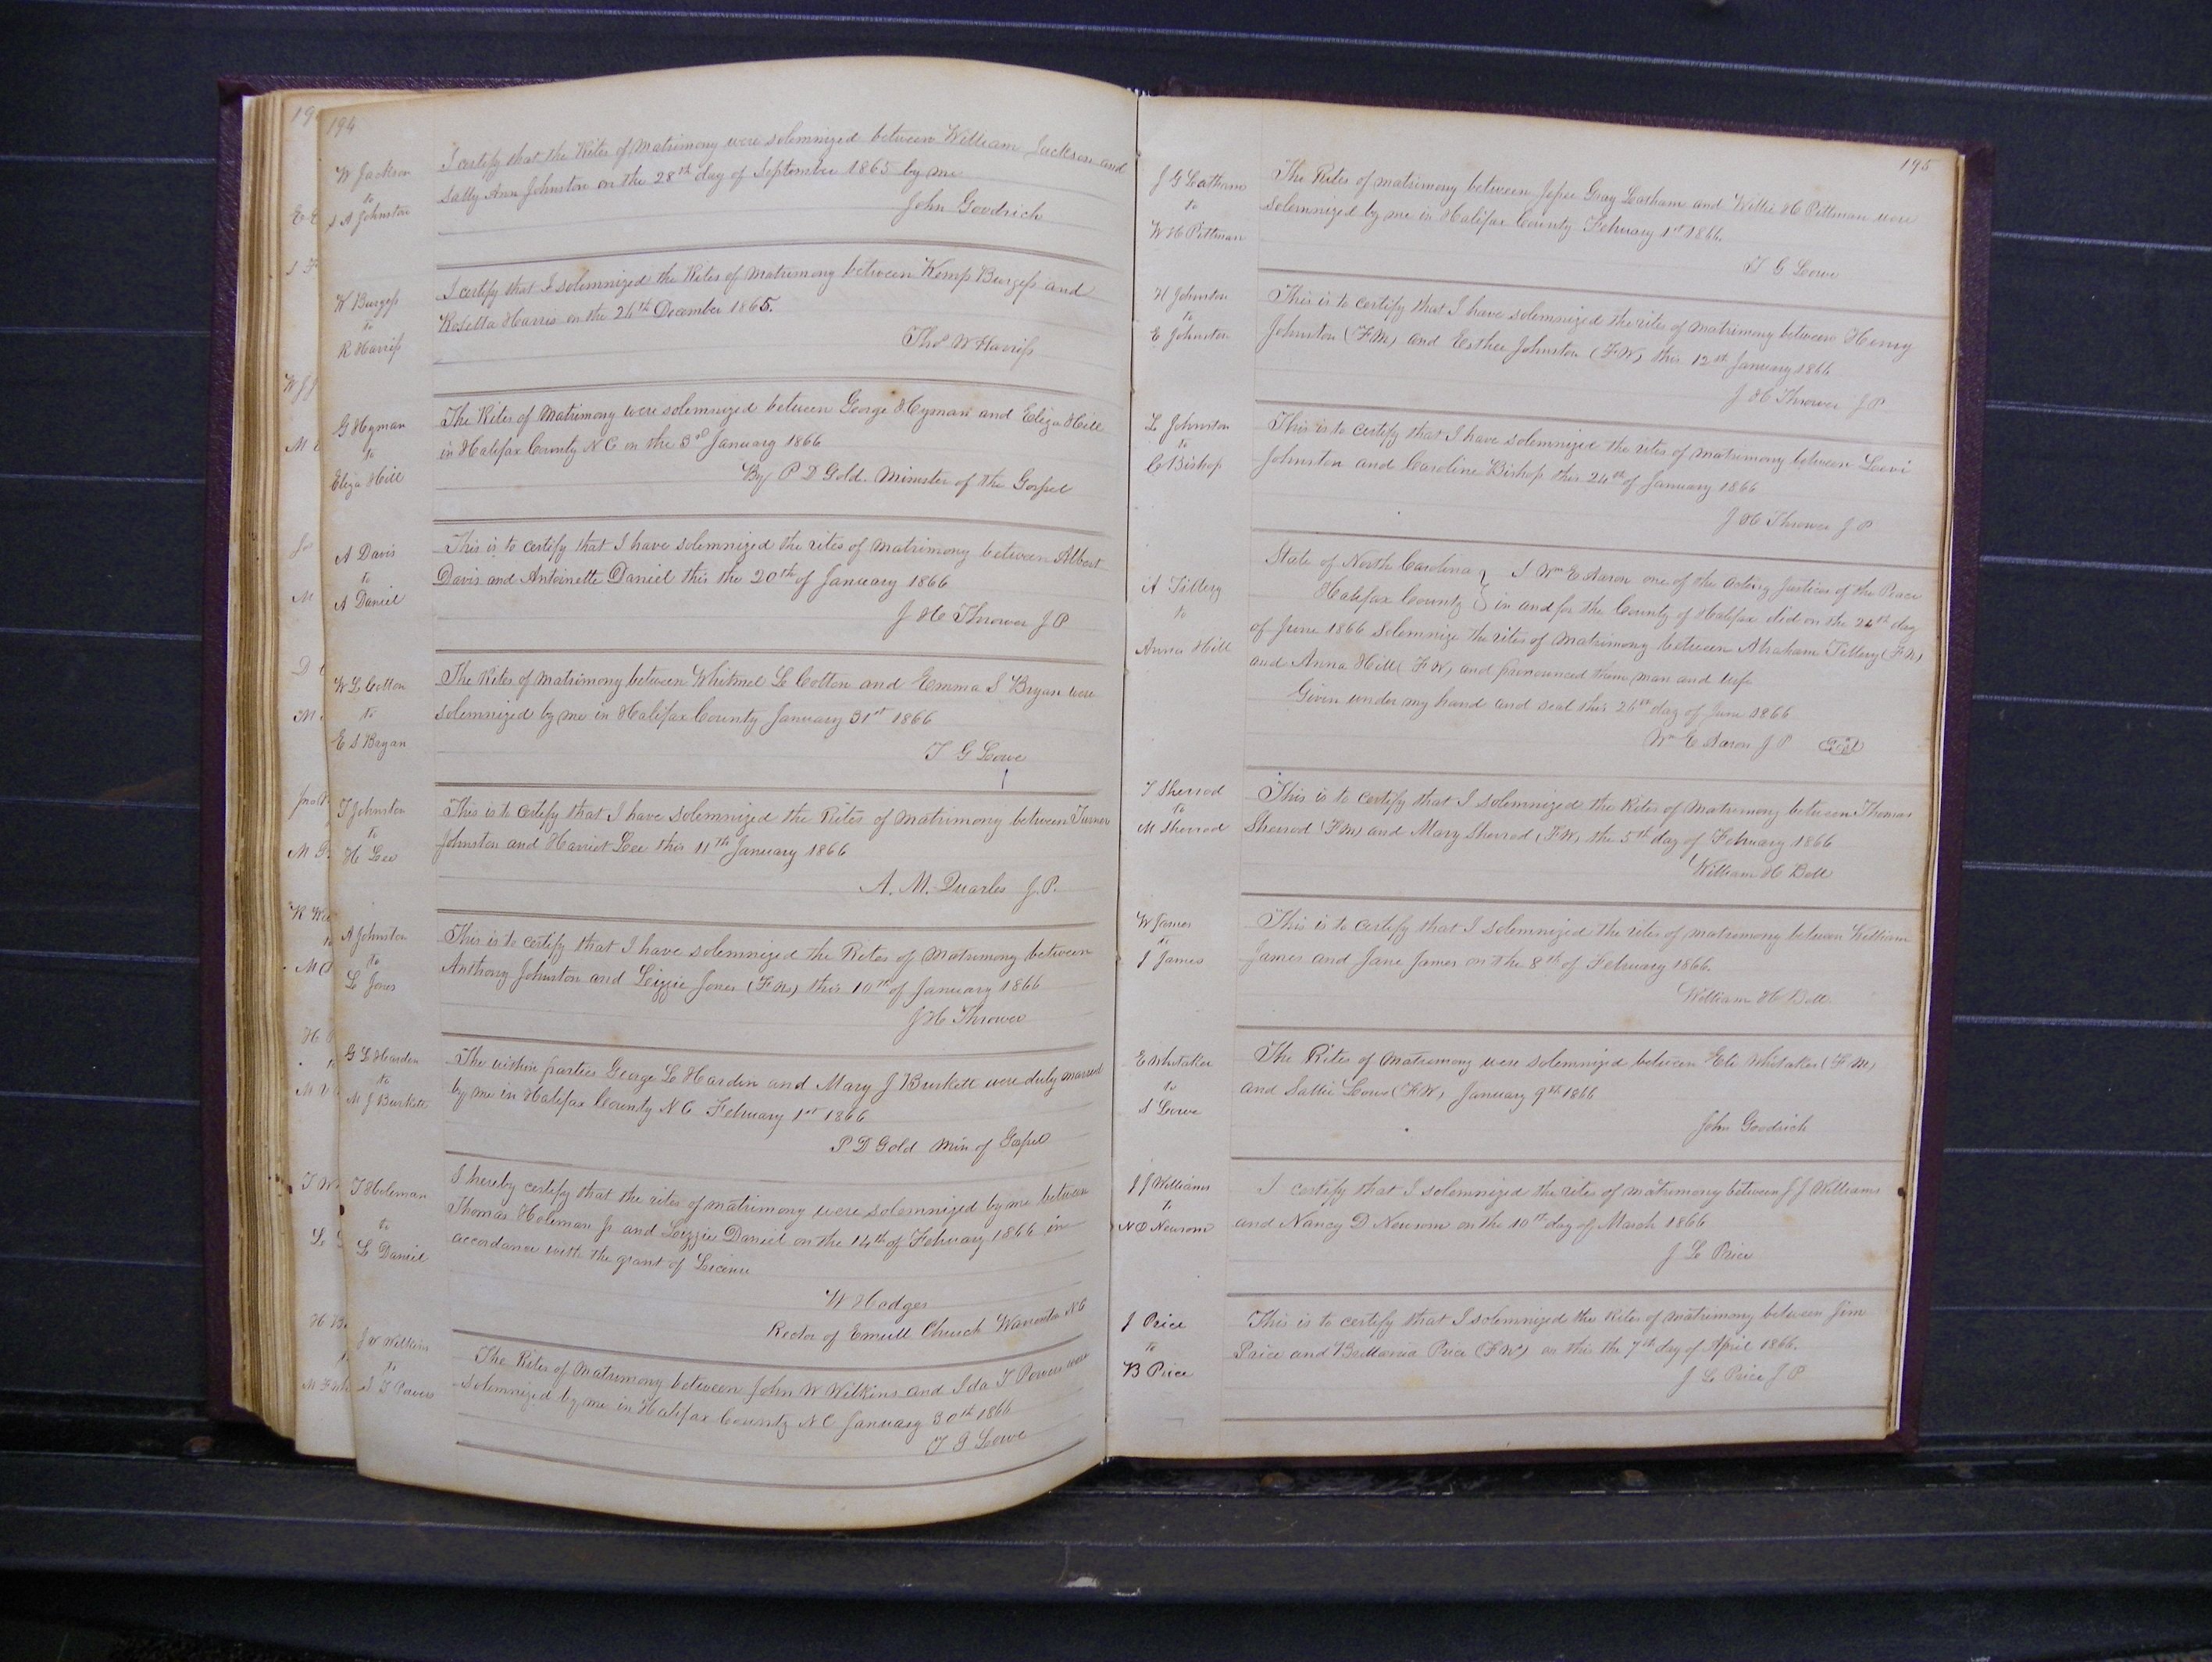 194
W Jackson
to
S A Johnston
I certify that the Rites of Matrimony were solemnized between William Jackson and
Sally Ann Johnston on the 28th day of September 1865 by me
John Goodrich
K Burgess
to
R Harriss
I certify that I solemnized the Rites of Matrimony between Kemp Burgess and
Rosetta Harris on the 26th December 1865.
Thos W Harriss
G Hyman
to
Eliza Hill
The Rites of Matrimony were solemnized between George Hyman and Eliza Hill
in Halifax County N C on the 3rd January 1866
By P D Gold. Minister of the Gospel
A Davis
to
A Daniel
This is to certify that I have solemnized the rites of matrimony between Albert
Davis and Antoinette Daniel this the 20th of January 1866
J H Thrower J P
W L Cotton
to
E S Bryan
The Rites of Matrimony between Whitmel L Cotton and Emma S Bryan were
solemnized by me in Halifax County January 31st 1866
T G Lowe
T Johnston
to
H Lee
This is to certify that I have solemnized the Rites of Matrimony between Turner
Johnston and Harriet Lee this 11th January 1866
A. M. Quarles J. P.
A Johnston
to
L Jones
This is to certify that I have solemnized the Rites of Matrimony between
Anthony Johnston and Lizzie Jones this 10th of January 1866
J H Thrower
G L Harden
to
M J Burkett
The within parties George L Hardin and Mary J Burkett were duly married
by me in Halifax County N C February 1st 1866
P D Gold Min of Gospel
T Holeman
to
L Daniel
I hereby certify that the rites of matrimony were solemnized by me between
Thomas Holeman Jr and Lizzie Daniel on the 14th of February 1866 in
accordance with the grant of License
W Hodges
Rector of Church Warrenton N C
J W Wilkins
to
I T Powers
The Rites of Matrimony between John W Wilkins and Ida T Powers were
solemnized by me in Halifax County N C January 30th 1866
T G Lowe
195
J G Latham
to
W H Pittman
The Rites of matrimony between Jesse Gray Latham and Willie H Pittman were
solemnized by me in Halifax County February 1st 1866.
T G Lowe
H Johnston
to
E Johnston
This is to certify that I have solemnized the rites of matrimony between Henry
Johnston (F.M) and Esther Johnston (F.W) this 12th January 1866
J H Thrower J P
L Johnston
to
C Bishop
This is to certify that I have solemnized the rites of matrimony between Levi
Johnston and Caroline Bishop this 24th of January 1866
J H Thrower J P
A Tillery
to
Anna Hill
State of North Carolina } I Wm E Aaron one of the acting Justices of the Peace
Halifax County } in and for the County of Halifax did on the 26th day
of June 1866 Solemnize the rites of matrimony between Abraham Tillery (F M)
and Anna Hill (F W) and pronounced them man and wife
Given under my hand and seal this 26th day of June 1866
Wm E Aaron J P
T Sherrod
to
M Sherrod
This is to certify that I solemnized the Rites of Matrimony between Thomas
Sherrod (F M) and Mary Sherrod (F W) the 5th day of February 1866
William H Bell
W James
to
J James
This is to certify that I solemnized the rites of matrimony between William
James and Jane James on the 8th of February 1866.
William H Bell
E Whitaker
to
S Lowe
The Rites of Matrimony were solemnized between Eli Whitaker (F M)
and Sallie Lowe (F W) January 9th 1866
John Goodrich
J J Williams
to
N D Newsom
I certify that I solemnized the rites of matrimony between J J Williams
and Nancy D Newsom on the 10th day of March 1866
J L Price
J Price
to
B Price
This is to certify that I solemnized the Rites of matrimony between Jim
Price and Brittania Price (F W) on this the 7th day of April 1866.
J L Price J P